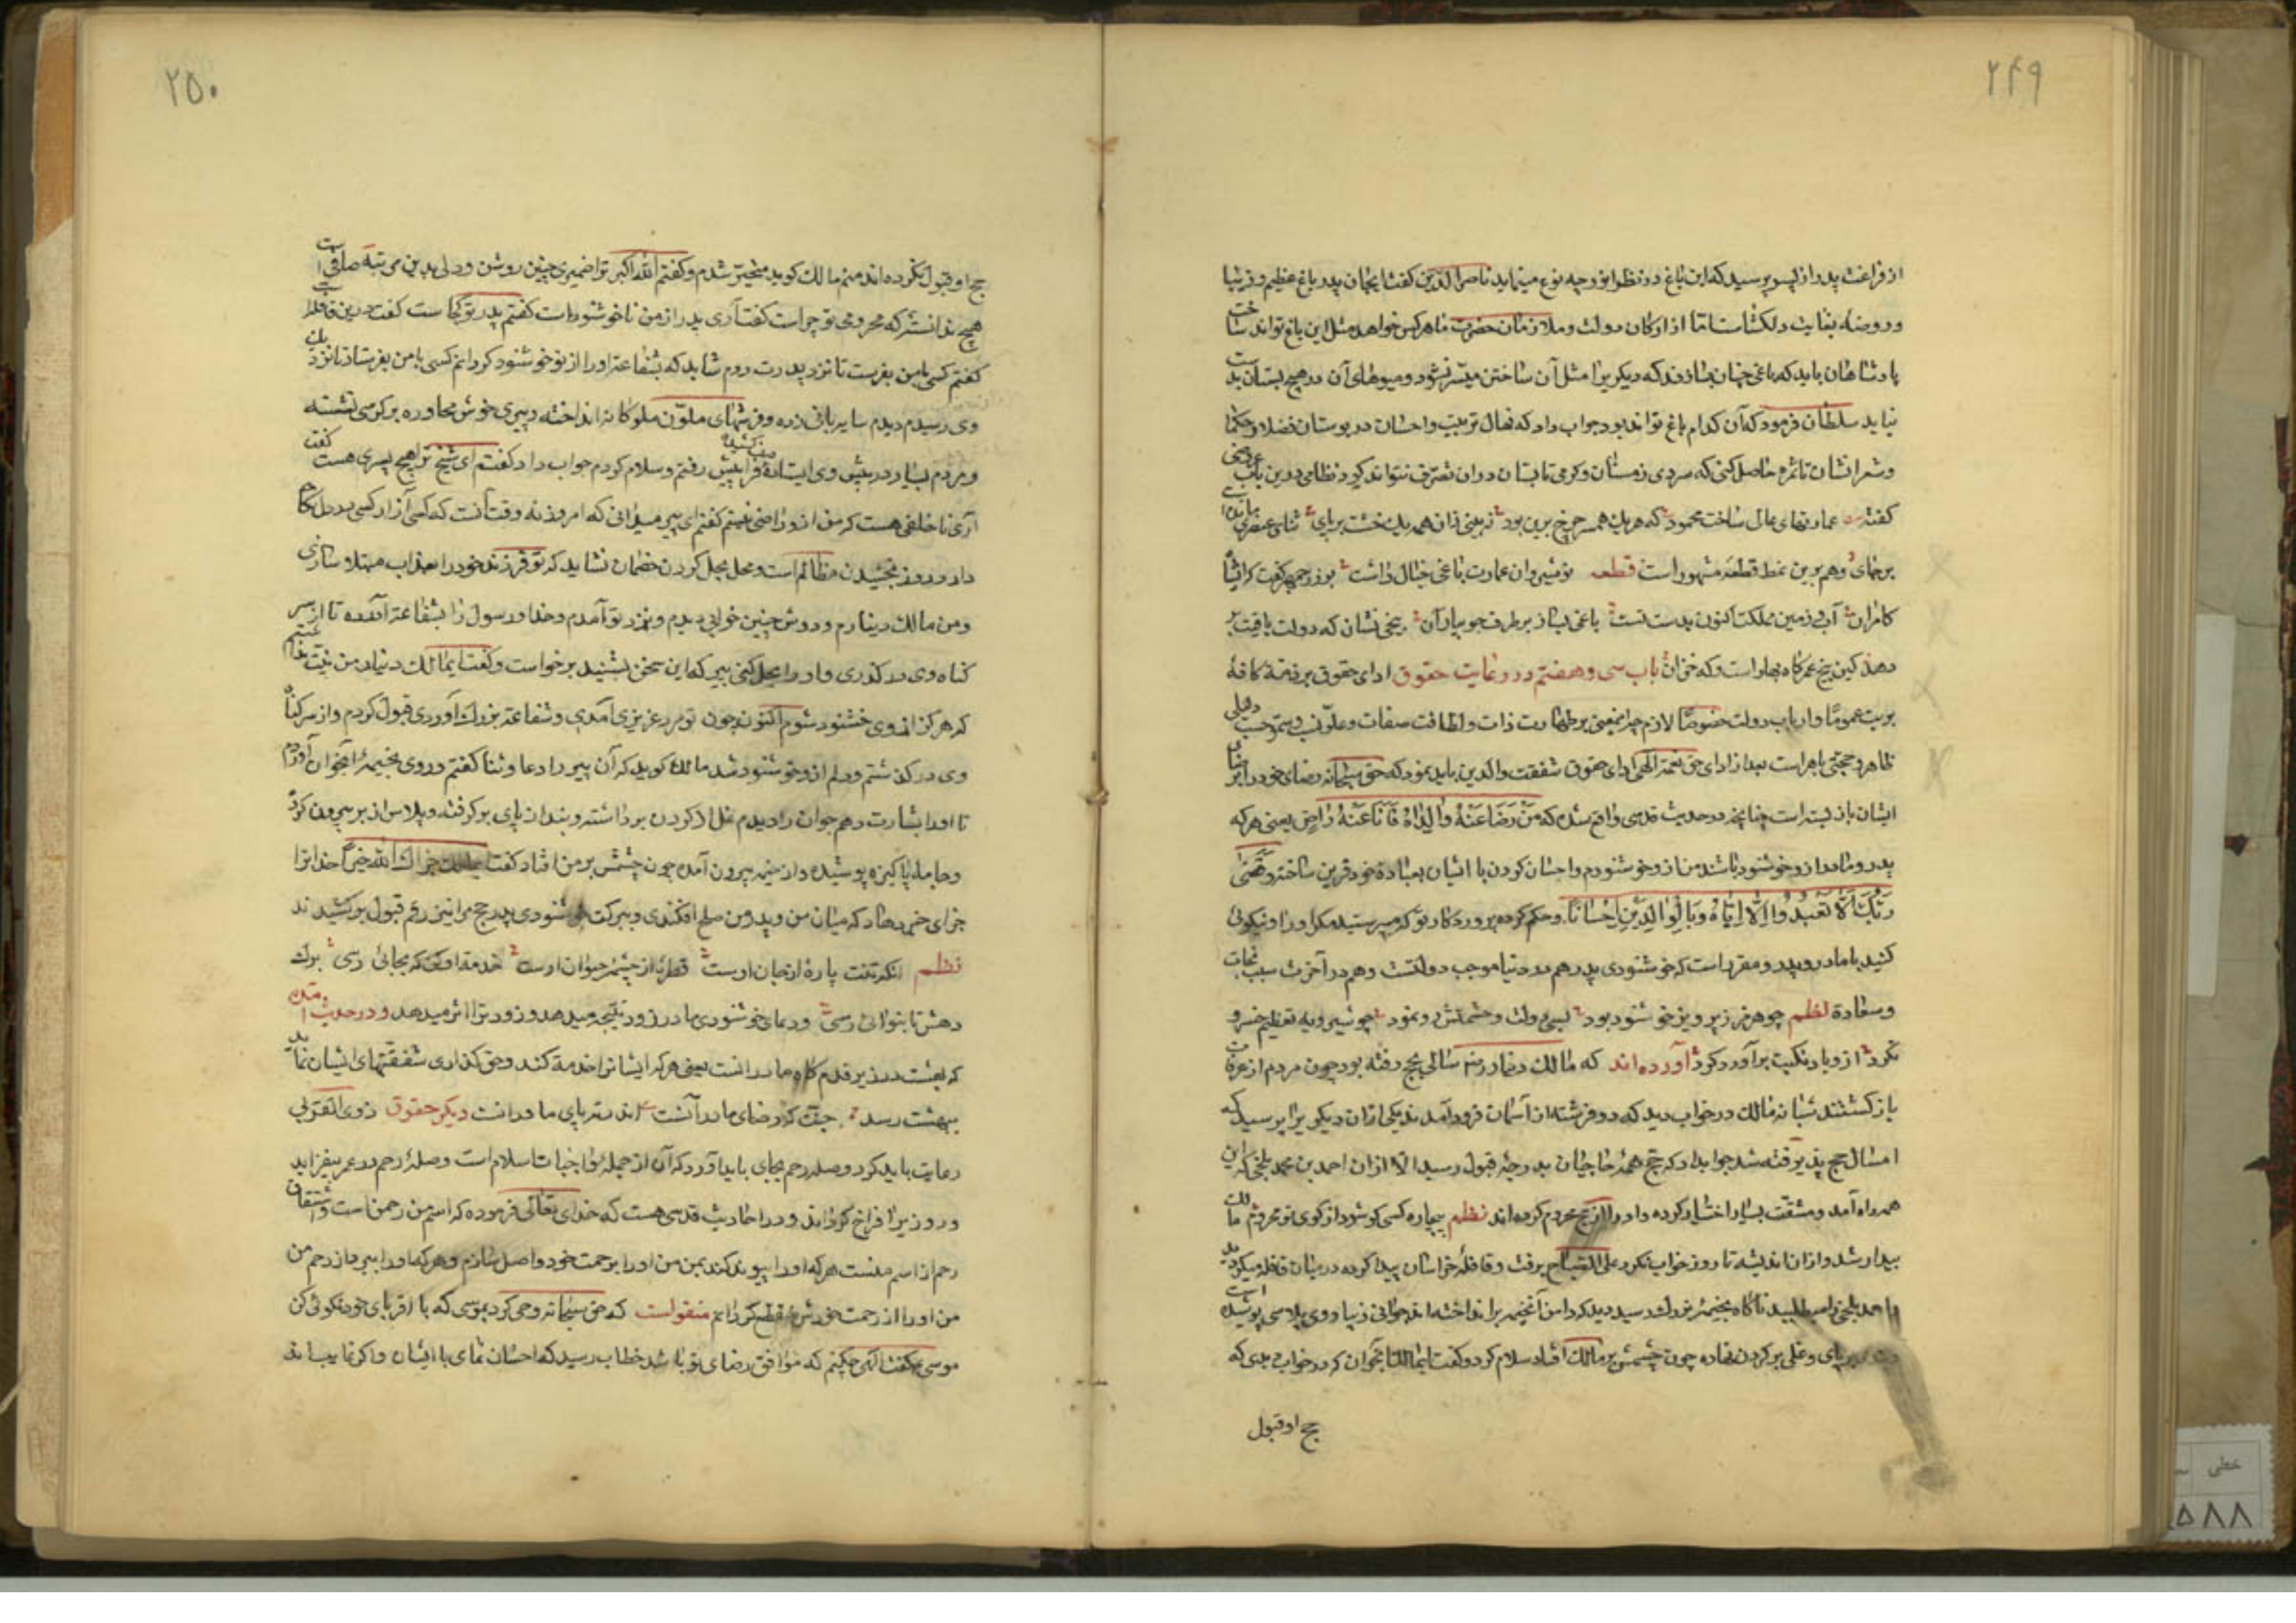 ۲۴۹
از فراغت پدر از پسر پرسید که این باغ در نظر تو چه نوع مینماید ناصر الدین گفت ایجهان پدر باغ عظیم و زیبا
و روضه بغایت دلگشاست اما از ارکان دولت و ملازمان حضرت ما هر کس خواهد مثل این باغ تواند ساخت
پادشاهان باید که باغی چنان سازند که دیگریرا مثل آن ساختن میسر نشود و میوهای آن در هیچ بستان بدست
نیاید سلطان فرمود که آن کدام باغ تواند بود جواب داد که نهال تربیت و احسان در بوستان فضلا و حکما
و شعرا نشان تا ثمره حاصل کنی که سردی زمستان و گرمی تابستان در آن تصرف نتواند کرد نظامی عروضی درین باب
گفته عمارتهای عالی ساخت محمود که هر یک همسر چرخ برین بود نه بینی زان همه یک خشت بر پای ثنای عنصری ماندست
بر جای و هم برین نمط قطعه مشهور است قطعه نوشیروان عمارت باغی خیال داشت بوزرجمهر گفت که ایشاه
کامران آب و زمین مملکت اکنون بدست تست باغی بساز بر طرف جویبار آن بیخی نشان که دولت باقیت بر
دهد کین بیخ عمر گاه بهار است و گه خزان باب سی و هفتم در رعایت حقوق ادای حقوق بر ذمه کافه
بریت عموما و ارباب دولت خصوصا لازم چه این معنی بر طهارت ذات و لطافت صفات و علو نسب و سمو حسب دلیلی
ظاهر و حجتی باهر است بعد از ادای حق نعمة الهی ادای حقوق شفقت والدین باید نمود که حق سبحانه رضای خود را برضای
ایشان باز بسته است چنانچه در حدیث قدسی واقع شده که مَنْ رَضَا عَنْهُ وَالِدَاهُ فَاَنَا عَنْهُ رَاضٍ یعنی هر که
پدر و مادر ازو خوشنود باشند من ازو خوشنودم و احسان کردن با ایشان بعبادة خود قرین ساخته وَقَضَی
رَبُّکَ اَلَّا تَعْبُدُوا اِلَّا اِیَّاهُ وَبِالْوَالِدَیْنِ اِحْسَانًا و حکم کرده پروردکار تو که مپرستید مکر او را و نیکوئی
کنید با مادر و پدر و مقرر است که خوشنودی پدر هم در دنیا موجب دولتست و هم در آخرت سبب نجات
و سعادة نظم چو هرمز ز پرویز خوشنود بود بسی دولت و حشمتش رو نمود چو شیرویه تعظیم خسرو
نکرد ازو باد نکبت برآورد کرد آورده‌اند که مالک دینار رسالی بحج رفته بود چون مردم از عرفات
باز کشتند شبانه مالک در خواب دید که دو فرشته از آسمان فرود آمدند یکی ازان دیگریرا پرسید که
امسال حج پذیرفته شد جواب داد که حج همه حاجیان بدرجه قبول رسید الا ازان احمد بن محمد بلخی که این
همه راه آمد و مشقت بسیار اختیار کرده و او را از حج محروم کرده‌اند نظم بیچاره کسی کو شود از کوی تو محروم مالک
بیدار شد و ازان اندیشه تا روز خواب نکرد علی الصباح برفت و قافله خراسان پیدا کرد در میان قافله میکردید
و احمد بلخی را میطلبید ناکاه بخیمه بزرك رسید دید که دامن آنخیمه بر انداخته اند جوانی زیبا روی پلاسی پوشیده است
بر پای و غلی بر کردن نهاده چون چشمش بر مالک افتاد سلام کرد و گفت ایمالک آنجوان که در خواب دیدی که
حج او قبول
۲۵۰
حج او قبول نکرده‌اند منم مالک کوید متحیر شدم و کفتم الله اکبر ترا ضمیری چنین روشن و دلی بدین مرتبه صافیست
هیچ ندانستی که محرومی تو چراست کفت آری پدر از من ناخوشنود است کفتم پدر تو کجاست کفت درین قافله است
کفتم کسی با من بفرست تا نزد پدرت روم شاید که بشفاعت او را از تو خوشنود کردانم کسی با من بفرستاد تا نزد
وی رسیدم دیدم سایه بانی زده و فرشهای ملوّن ملوکانه انداخته و پیری خوش محاوره بر کرسی نشسته
و مردم بسیار در پیش وی ایستاده صف کشیده فرا پیش رفتم و سلام کردم جواب داد کفتم ای شیخ ترا هیچ پسری هست کفت
آری ناخلفی هست که من ازو راضی نیستم کفتم ای پیر میدانی که امروز نه وقت آنست که کسی آزار کسی در دل نکاه
دارد روز بخشیدن مظالم است و محل بحل کردن خصمان نشاید که تو فرزند خود را بعذاب مبتلا سازی
و من مالک دینارم و دوش چنین خوابی دیدم و بنزد تو آمدم و خدا و رسول را بشفاعت آورده تا از سر
کناه وی در کذری و او را بحل کنی پیر که این سخن بشنید برخواست و کفت ایمالک دینار من نیت داشتم
که هرکز از وی خشنود نشوم اکنون چون تو مرد عزیزی آمدی و شفاعت بزرك آوردی قبول کردم و از سر کناه
وی در کذشتم و دلم ازو خوشنود شد مالک کوید که آن پیر را دعا و ثنا کفتم و روی بخیمه آنجوان آوردم
تا او را بشارت دهم جوان را دیدم غل از کردن برداشته و بند از پای بر کرفته و پلاس از بر بیرون کرده
و جامهٔ پاکیزه پوشیده و از خیمه بیرون آمده چون چشمش بر من افتاد کفت ایمالک جزاك الله خیرًا خدا ترا
جزای خیر دهاد که میان من و پدر من صلح افکندی و ببرکت خوشنودی پدر حج مرا نیز رقم قبول بر کشیدند
نظم آنکه تنت پارهٔ از جان اوست قطرهٔ از چشمه حیوان اوست خدمة او کن که بجائی رسی برك
دهش تا بنوائی رسی و دعای خوشنودی مادر زود نتیجه میدهد و زود ترا اثر میدهد و در حدیث آمده
که بهشت در زیر قدم کاه مادرانست یعنی هر که ایشانرا خدمة کند و حق کذاری شفقتهای ایشان نماید
ببهشت رسد جنت که رضای ما در آنست اندر ته پای مادرانست دیکر حقوق ذوی القربی
رعایت باید کرد و صلهٔ رحم بجای باید آورد که آن از جملهٔ واجبات اسلام است وصلهٔ رحم در عمر بیفزاید
و روزیرا فراخ کرداند و در احادیث قدسی هست که خدای تعالی فرموده که اسم من رحمن است و اشتقاق
رحم از اسم منست هر که او را پیوند کند بمن من او را برحمت خود واصل سازم و هر که او را ببرد از رحم من
من او را از رحمت خویش قطع کردانم منقولست که حق سبحانه وحی کرد بموسی که با اقربای خود نکوئی کن
موسی کفت الهی چکنم که موافق رضای تو باشد خطاب رسید که احسان نمای با ایشان و اکر غایب‌اند
خطی
۵۸۸